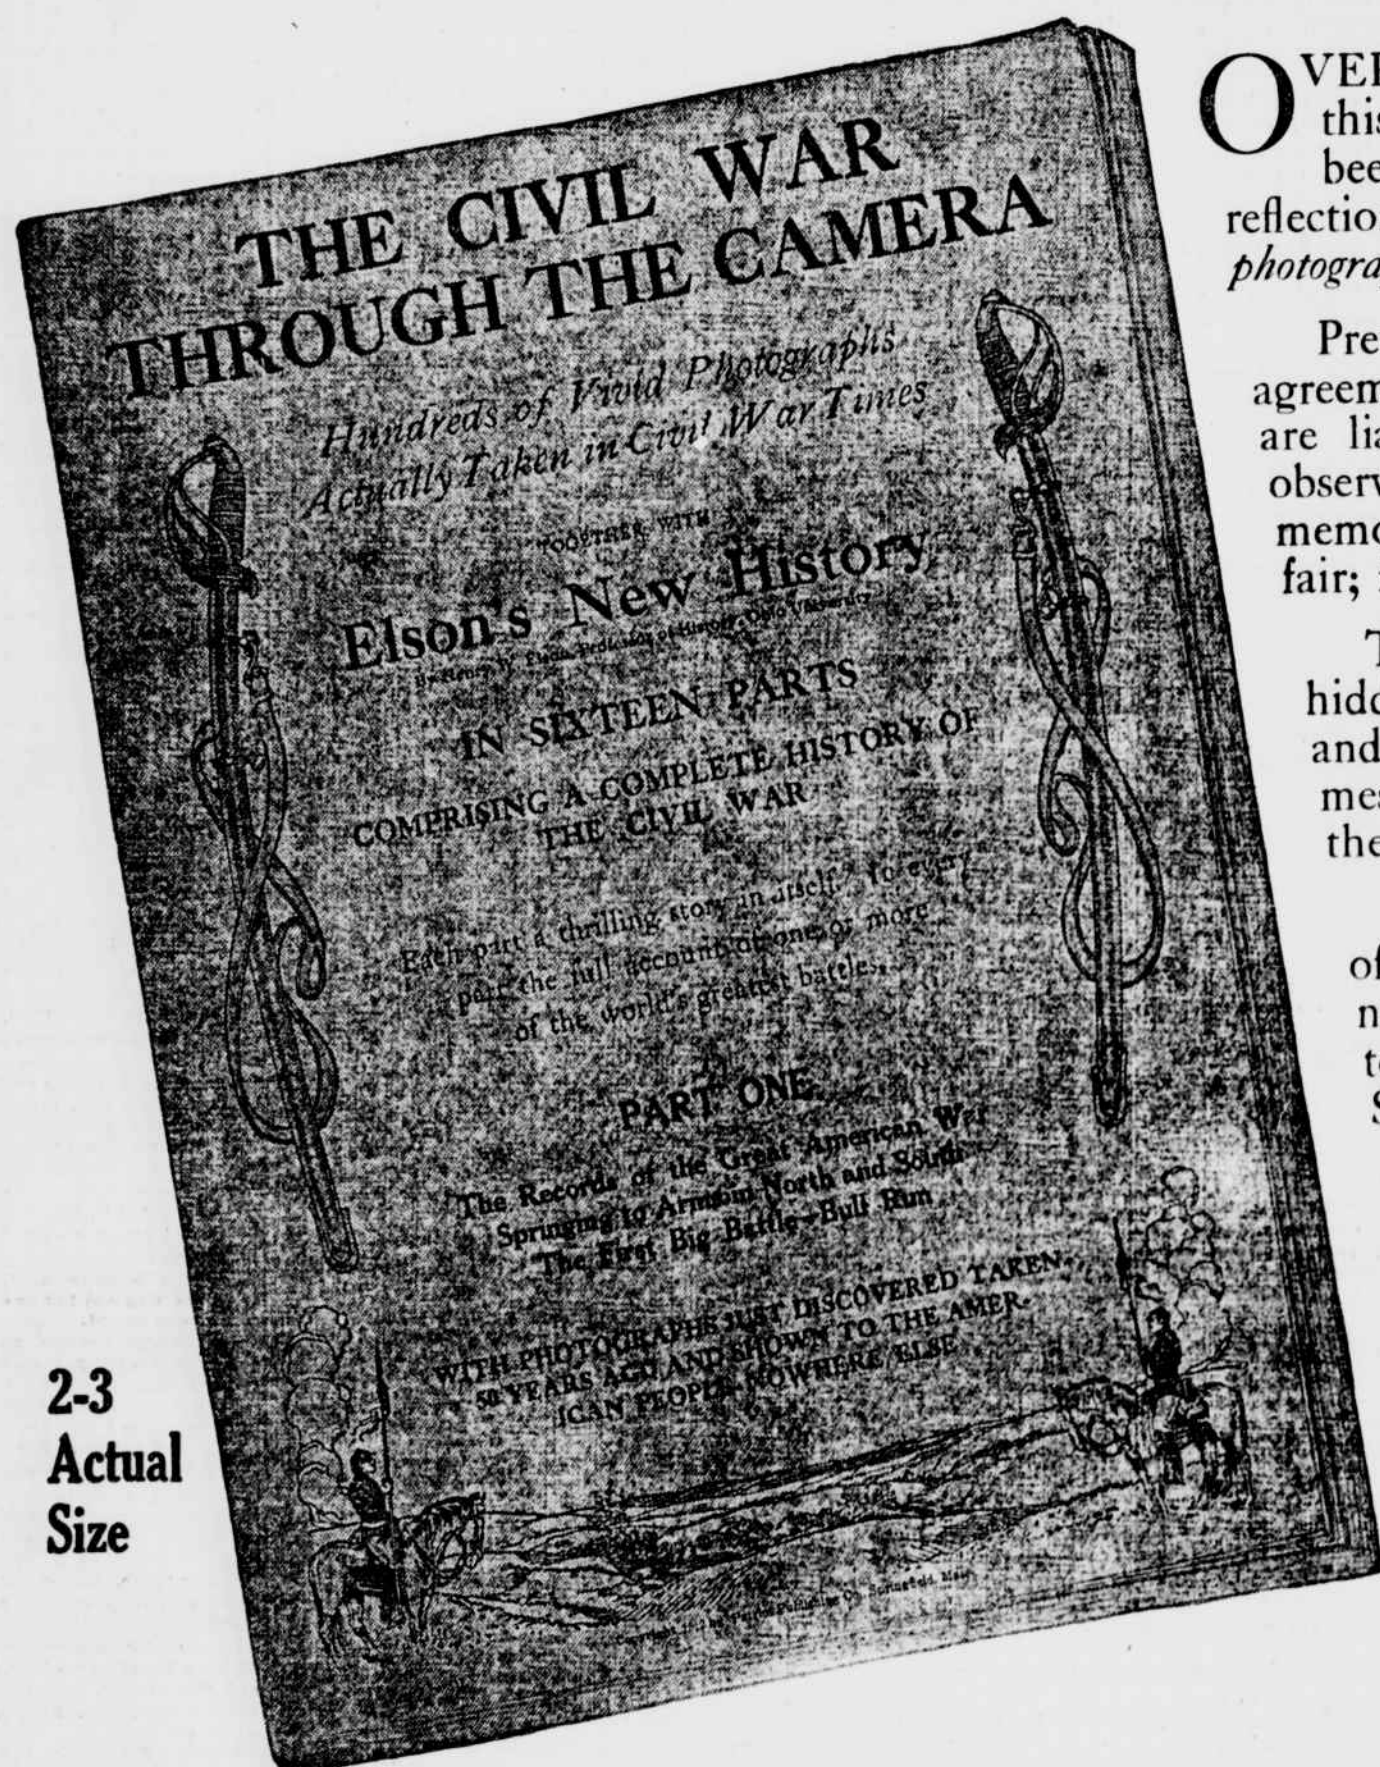 THE CIVIL WAR
THROUGH THE CAMERA
Hundreds of Vivid Photographs
Actually Taken in Civil War Times
TOGETHER WITH
Elson's New History
By Henry W. Elson, Professor of History, Ohio University
IN SIXTEEN PARTS
COMPRISING A COMPLETE HISTORY OF
THE CIVIL WAR
Each part a thrilling story in itself. To every
part the full account of one or more
of the world's greatest battles.
PART ONE
The Records of the Great American War
Springing to Arms in North and South
The First Big Battle—Bull Run
WITH PHOTOGRAPHS JUST DISCOVERED TAKEN
50 YEARS AGO AND SHOWN TO THE AMER-
ICAN PEOPLE NOWHERE ELSE
Publishing Co., Springfield, Mass.
2-3
Actual
Size
OVER
this
bee
reflectio
photogra
Pre
agreem
are lia
observ
memo
fair;
T
hidd
and
mes
the
of
n
t
S